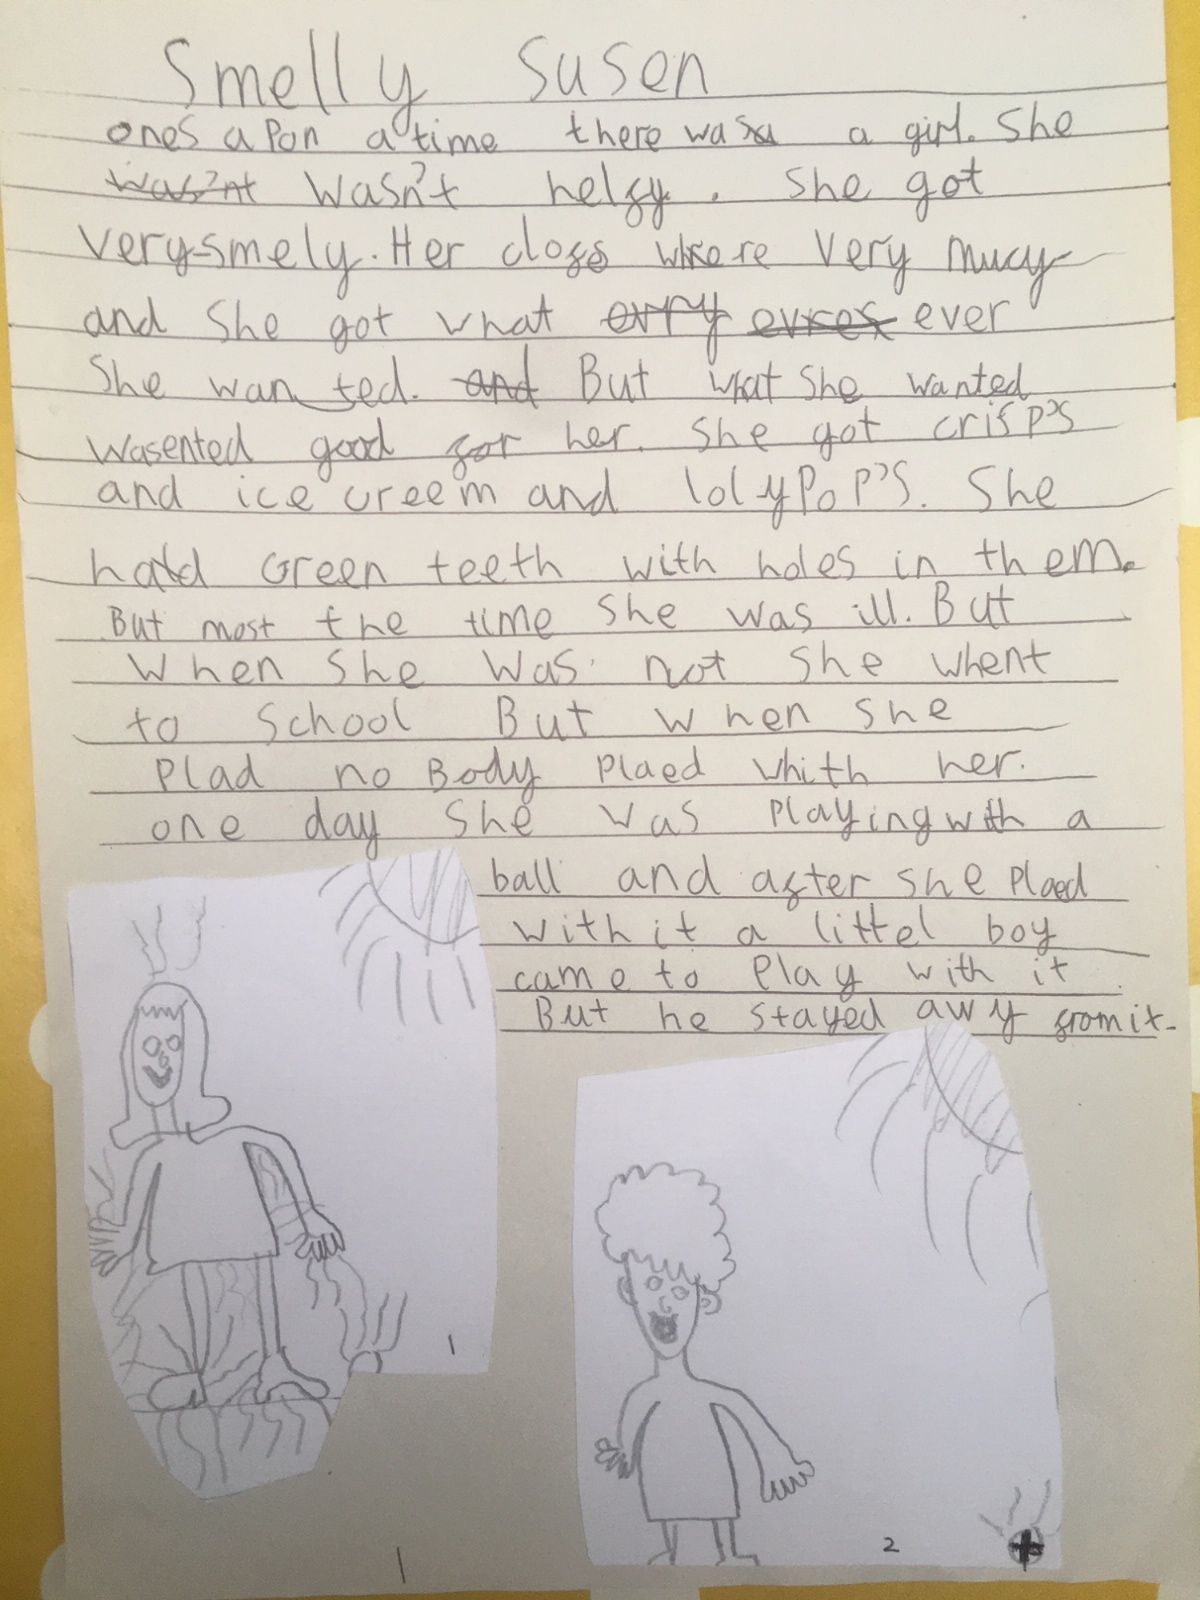 Smelly Susen
ones a Pon a time there was a girl. She
was'nt wasn't helfy. She got
very smely. Her clofs where very mucy
and She got what evry evres ever
She wanted. and But what She wanted
wasented good for her. She got crisp's
and ice creem and lolypop's. She
had Green teeth with holes in them.
But most the time She was ill. But
When She Was not She whent
to School But when She
Plad no Body Plaed whith her.
one day She was Playing with a
ball and after She Plaed
with it a littel boy
came to Play with it
But he stayed awy from it.
1
2
1